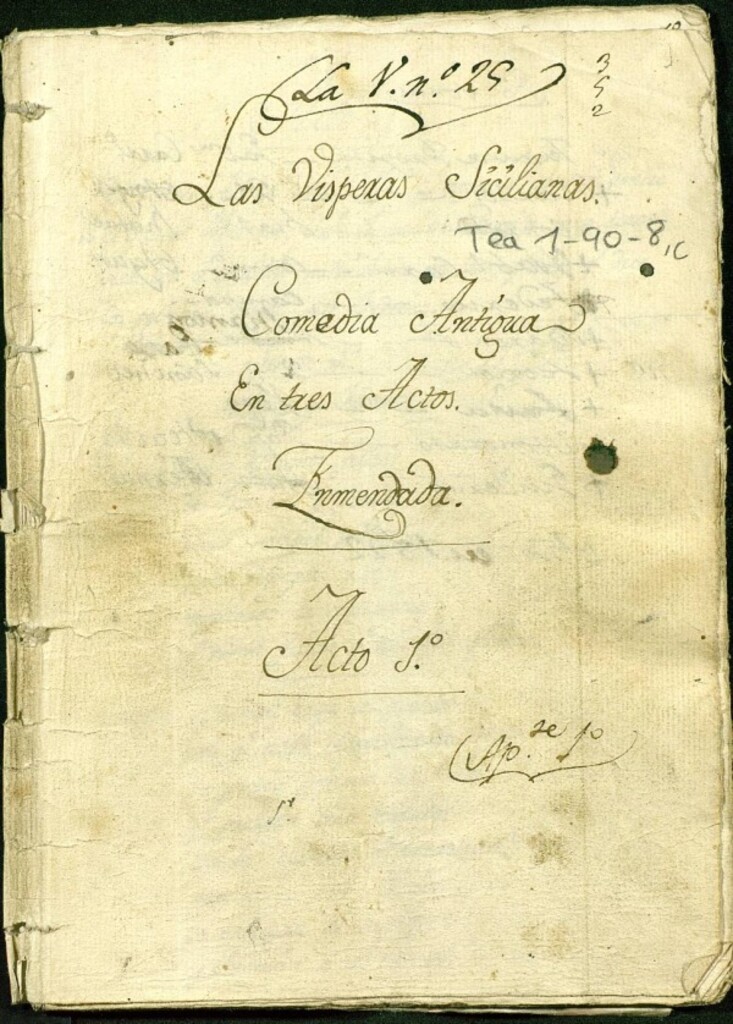 La V. n.º 25
3
5
2
Las Visperas Sicilianas.
Tea 1-90-8, C
Comedia Antigua
En tres Actos.
Enmendada.
Acto 1.º
Ap.te 1º